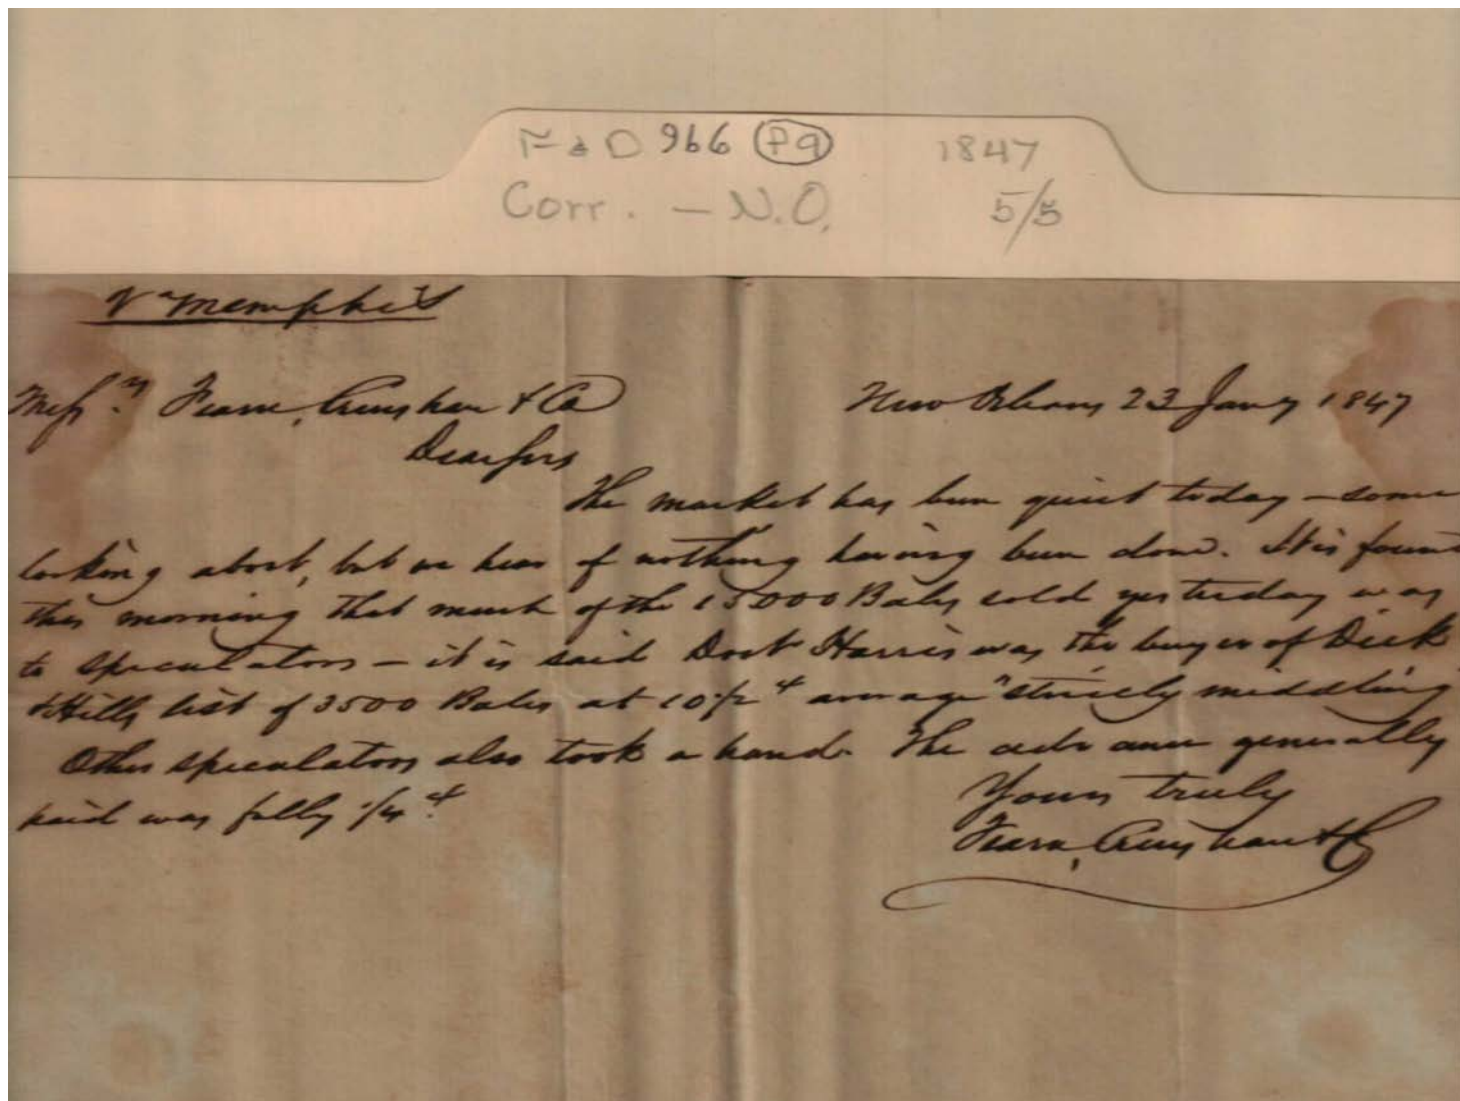 F & D 966 P9 1847
Corr. - N.O. 5/5
Memphis
Messrs Fearn, Crenshaw & Co New Orleans 23 Jany 1847
Dear Sirs
The market has been quiet today - some
looking about, but we hear of nothing having been done. It is found
this morning that much of the 15000 Bales sold yesterday was
to speculators - it is said Doct Harris was the buyer of Dick
& Hills list of 3500 Bales at 10 1/2 ¢ average "strictly middling
Other speculators also took a hand. The advance generally
paid was fully 1/4 ¢.
Yours truly
Fearn, Crenshaw & Co